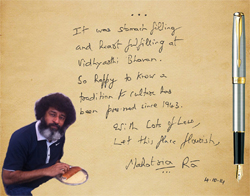 It was stomach filling
and heart fulfilling at
Vidhyarthi Bhavan.
So happy to know a
tradition & culture has
been preserved since 1943.
With Lots of Love,
Let this place flourish,